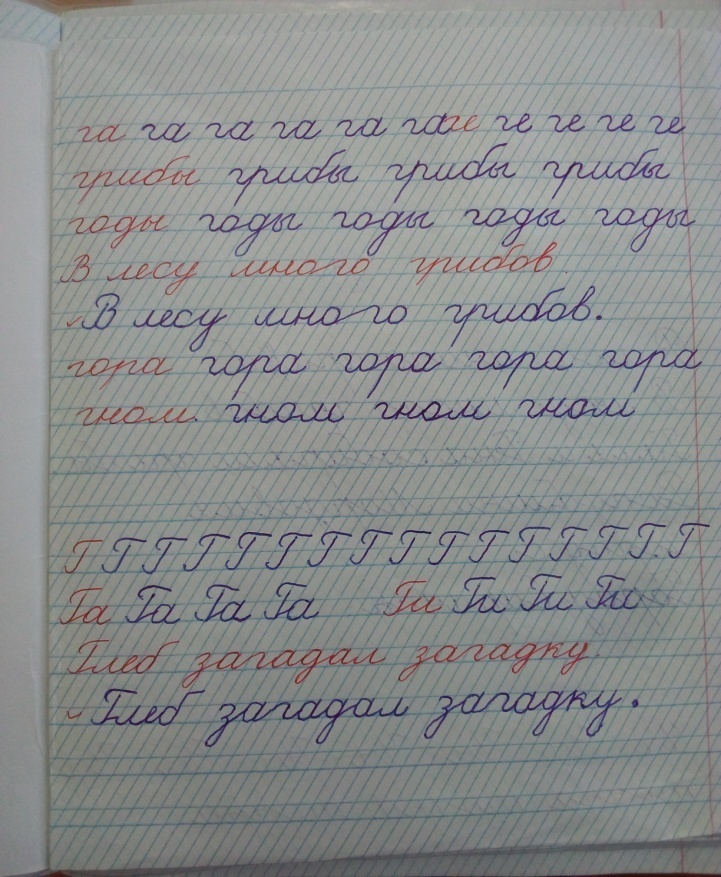 га га га га га га ге ге ге ге ге
грибы грибы грибы грибы
годы годы годы годы годы
В лесу много грибов
В лесу много грибов.
гора гора гора гора гора
гном. гном гном гном
Г Г Г Г Г Г Г Г Г Г Г Г Г Г Г. Г
Га Га Га Га Ги Ги Ги Ги
Глеб загадал загадку
Глеб загадал загадку.